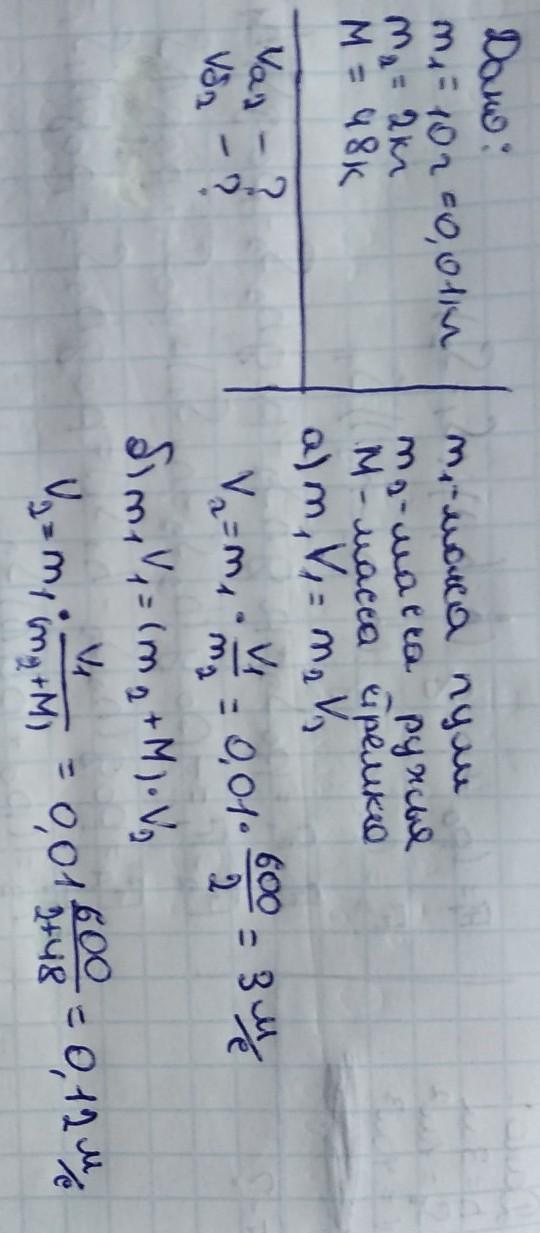 Дано:
m₁ = 10 г = 0,01 кг
m₂ = 2 кг
M = 48 к
Vа₂ - ?
Vб₂ - ?
m₁ - масса пули
m₂ - масса ружья
M - масса стрелка
а) m₁ V₁ = m₂ V₂
V₂ = m₁ · V₁/m₂ = 0,01 · 600/2 = 3 м/с
б) m₁ V₁ = (m₂ + M) · V₂
V₂ = m₁ · V₁/(m₂ + M) = 0,01 600/2+48 = 0,12 м/с